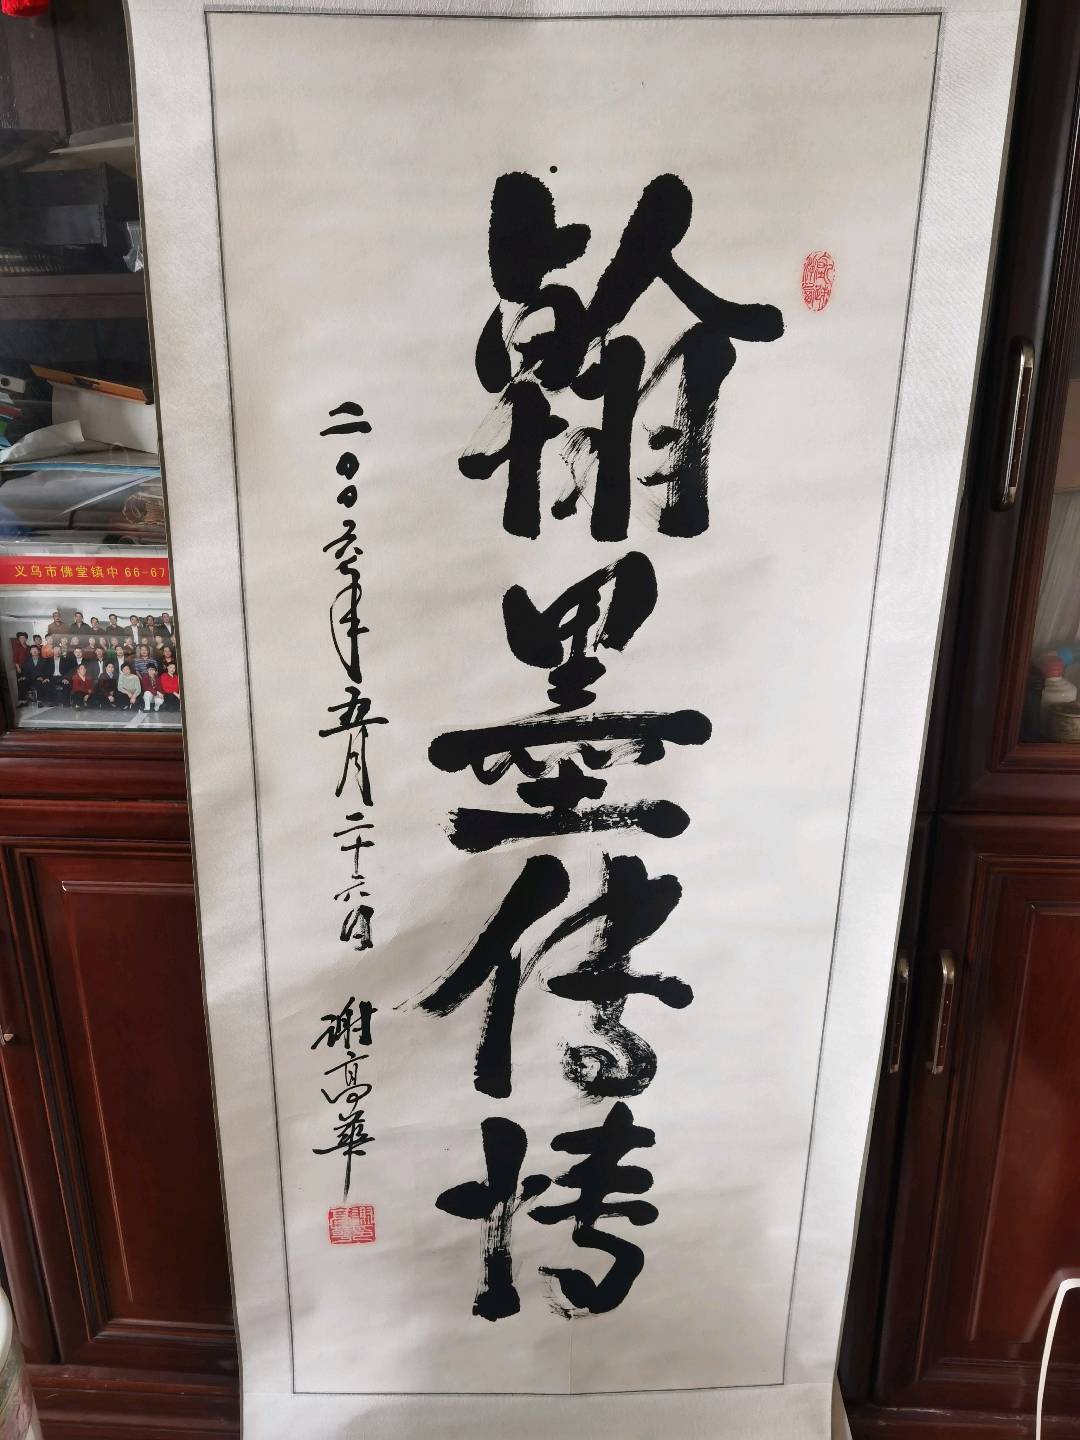 翰墨传情
二〇〇六年五月二十六日
谢高华
义乌市佛堂镇中 66-67